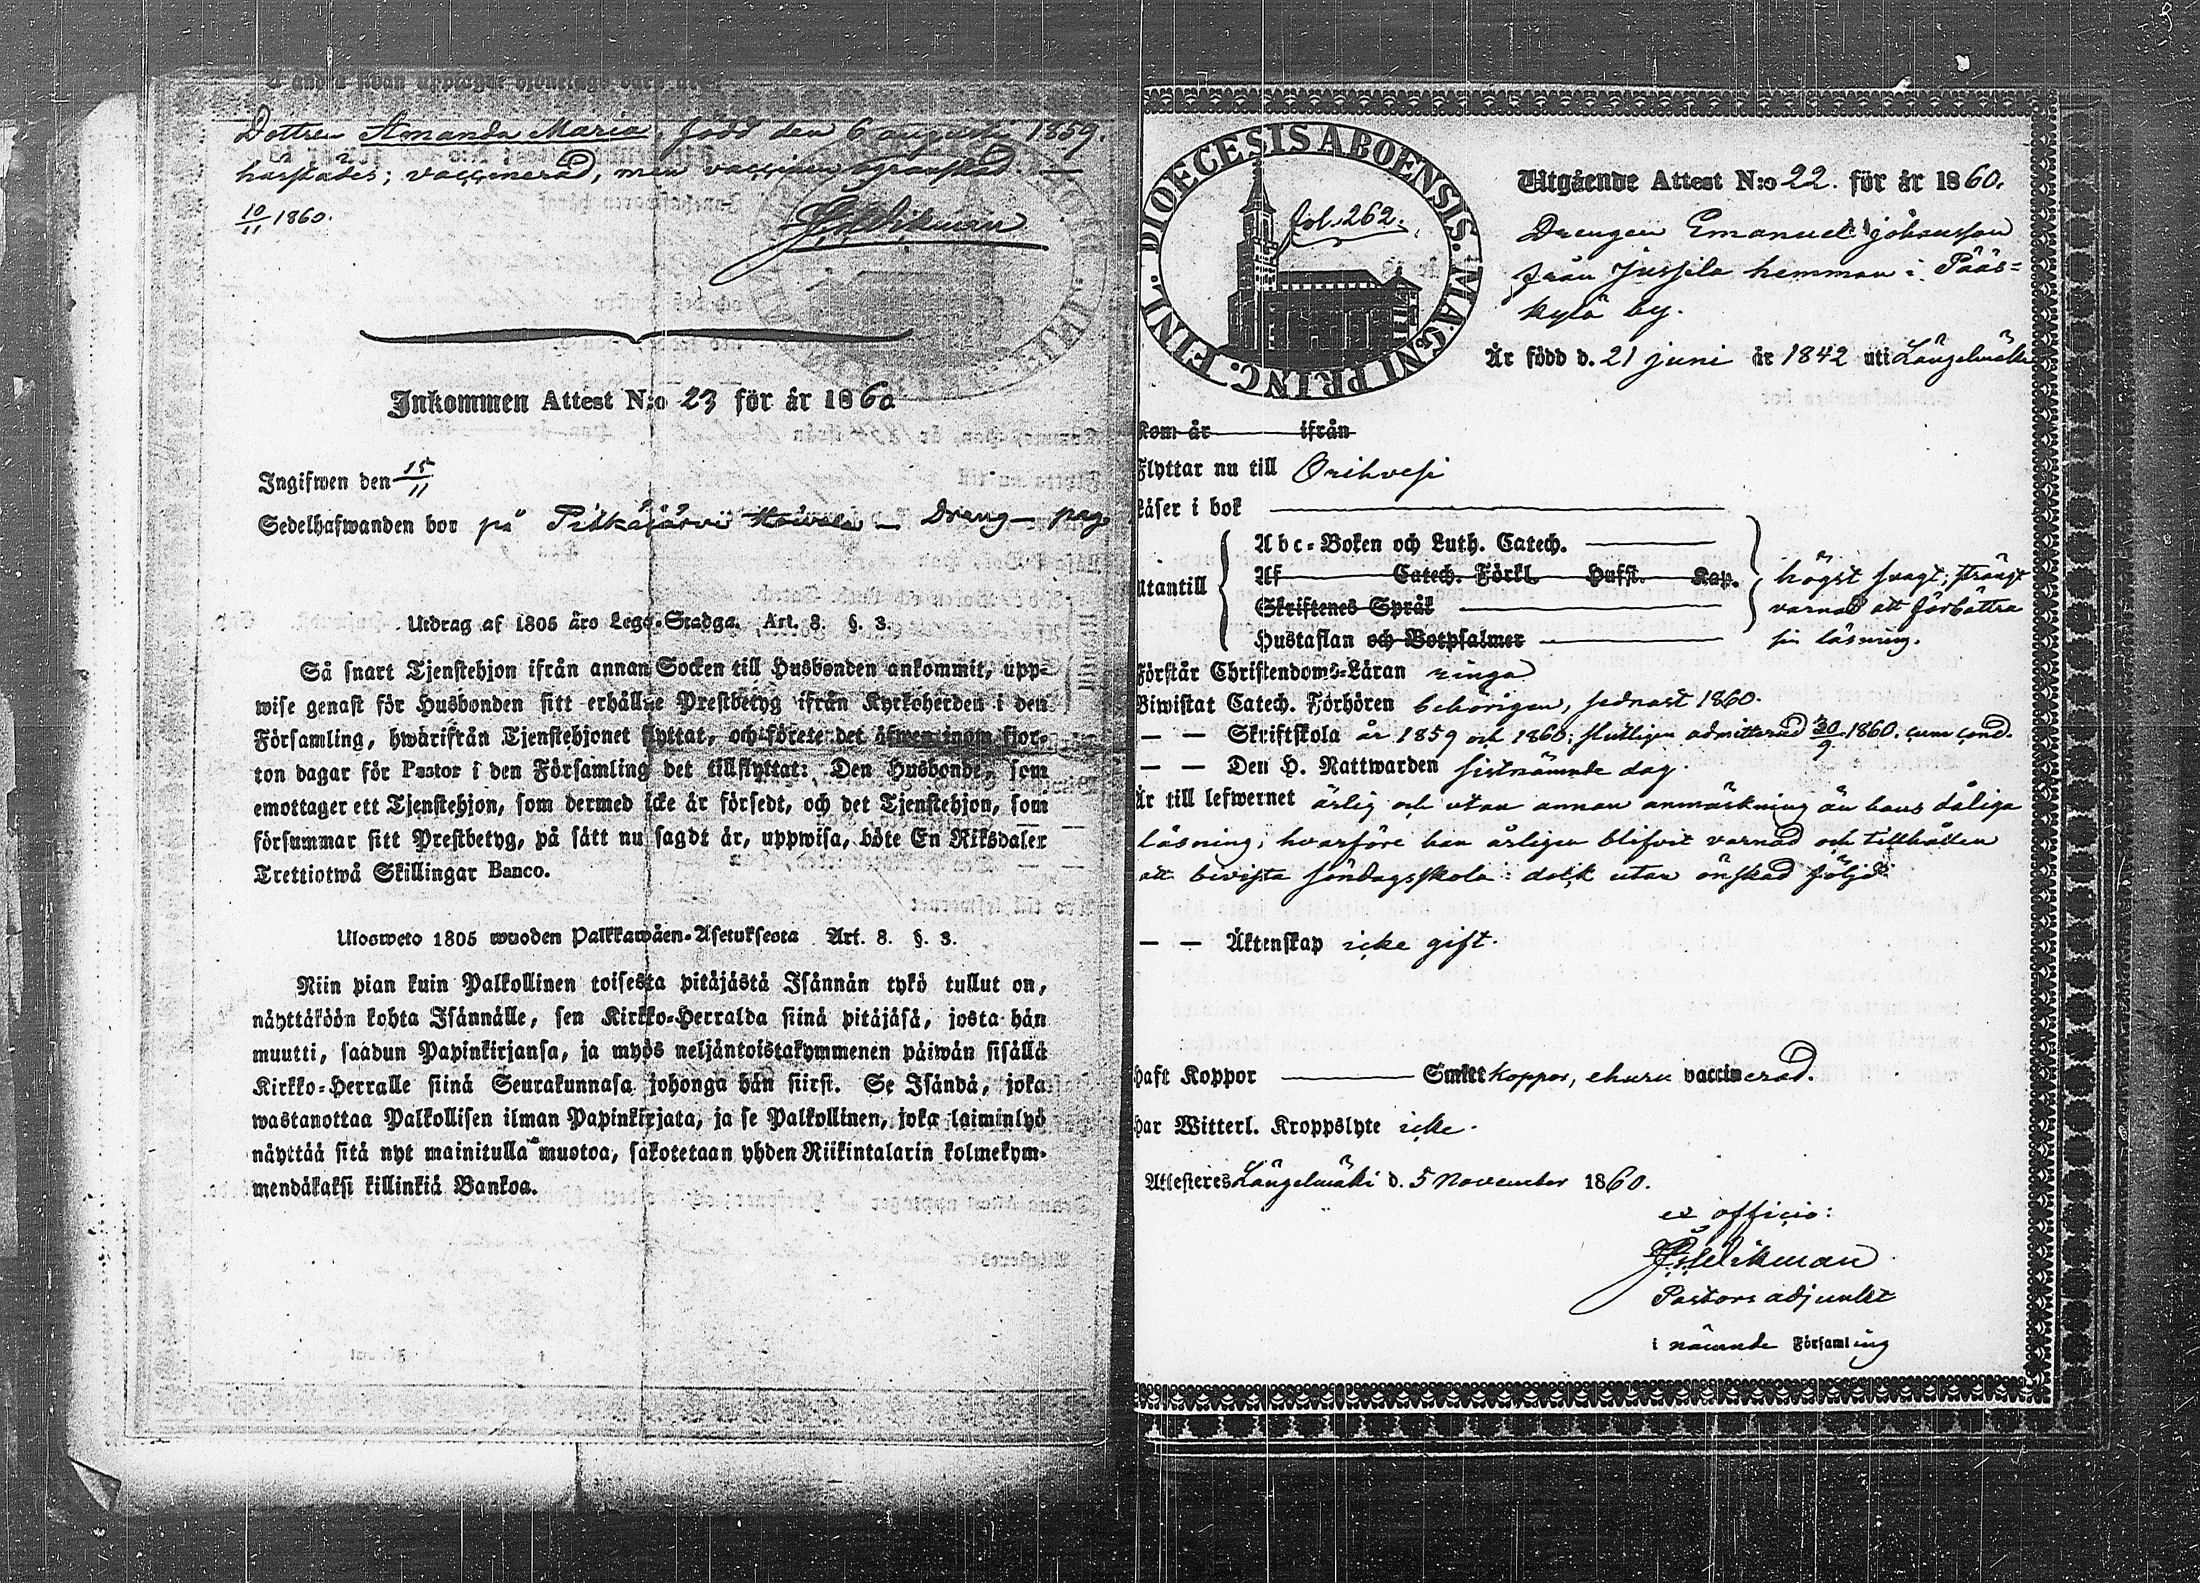 Dottren Amanda Maria, född den 6 augusti 1859.
härstädes; vaccinerad, men vaccinen ogranskad. —
10/11 1860.
Wikman
Inkommen Attest N:o 23 för år 1860
Ingifwen den 15/11
Sedelhafwanden bor på Pitkäjärvi — Dreng — pag.
Utdrag af 1805 åro Lego-Stadga. Art. 8. §. 3.
Så snart Tjenstehjon ifrån annan Socken till Husbonden ankommit, upp-
wise genast för Husbonden sitt erhållne Prestbetyg ifrån Kyrkoherden i den
Församling, hwarifrån Tjenstehjonet flyttat, och förete det äfwen inom fjor-
ton dagar för Pastor i den Församling det tillflyttat: Den Husbonde, som
emottager ett Tjenstehjon, som dermed icke är försedt, och det Tjenstehjon, som
försummar sitt Prestbetyg, på sätt nu sagdt är, uppwisa, böte En Riksdaler
Trettiotwå Skillingar Banco.
Ulosweto 1805 wuoden Palkkawäen-Asetuksesta Art. 8. §. 3.
Niin pian kuin Palkollinen toisesta pitäjästä Isännän tykö tullut on,
näyttäköön kohta Isännälle, sen Kirkko-Herralda siinä pitäjäsä, josta hän
muutti, saadun Papinkirjansa, ja myös neljäntoistakymmenen päiwän sisällä
Kirkko-Herralle siinä Seurakunnasa johonga hän siirsi. Se Isändä, joka
wastanottaa Palkollisen ilman Papinkirjata, ja se Palkollinen, joka laiminlyö
näyttää sitä nyt mainitulla muotoa, sakotetaan yhden Riikintalarin kolmekym-
mendäkaksi killinkiä Bankoa.
DIOECESIS ABOENSIS. MAGNI PRINC. FINL.
fol. 262.
Utgående Attest N:o 22. för år 1860.
Drengen Emanuel Johansson
från Jussila hemman i Pääs-
kylä by.
Är född d. 21 juni år 1842 uti Längelmäki
Kom år ifrån
Flyttar nu till Orihvesi
Läser i bok
Utantill
Abc-Boken och Luth. Catech.
Af Catech. Förkl. Hufst. Kap.
Skriftenes Språk
Hustaflan och Botpsalmer
högst svagt; strängt
varnad att förbättra
sin läsning.
Förstår Christendoms-Läran ringa
Biwistat Catech. Förhören behörigen, sednast 1860.
— — Skriftskola år 1859 och 1860; slutligen admitterad 30/9 1860. cum cond.
— — Den H. Nattwarden sistnämnde dag.
Är till lefwernet ärlig och utan annan anmärkning än hans dåliga
läsning, hvarföre han årligen blifvit varnad och tillhållen
att bevista söndagsskola: dock utan önskad följd.
— — Äktenskap icke gift.
Haft Koppor Smittkoppor, ehuru vaccinerad.
Har Witterl. Kroppslyte icke.
Attesteres Längelmäki d. 5 November 1860.
ex officio:
Wikman
Pastors adjunkt
i nämnde Församling